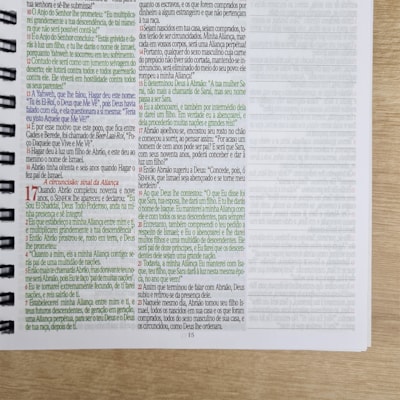 senhora e sê-lhe submissa!"
10 O Anjo do Senhor lhe prometeu: "Eu multiplica-
rei grandemente a tua descendência, de tal manei-
ra que não será possível contá-la!
11 E o Anjo do Senhor concluiu: "Estás grávida e da-
rás à luz um filho, e tu lhe darás o nome de Ismael,
porquanto Yahweh te socorreu em teu sofrimento.
12 Contudo ele será como um jumento selvagem do
deserto; ele lutará contra todos e todos guerrearão
contra ele. Ele viverá em hostilidade contra todos
os seus parentes!"
13 A Yahweh, que lhe falou, Hagar deu este nome:
"Tu és El-Roí, o Deus que Me Vê", pois Deus havia
falado com ela, e ela questionara a si mesma: "Teria
eu visto Aquele que Me Vê?"
14 É por esse motivo que este poço, que fica entre
Cades e Berede, foi chamado de Beer Laai-Roí, "Po-
ço Daquele que Vive e Me Vê".
15 Hagar deu à luz um filho de Abrão, e este deu ao
menino o nome de Ismael.
16 Abrão tinha oitenta e seis anos quando Hagar lhe
fez pai de Ismael.
A circuncisão: sinal da Aliança
17 Quando Abrão completou noventa e nove
anos, o SENHOR lhe apareceu e declarou: "Eu
Sou El-Shaddai, Deus Todo-Poderoso, anda na mi-
nha presença e sê íntegro!
2 Eu que estabeleço a minha Aliança entre mim e ti,
e multiplicarei grandemente a tua descendência!"
3 Então Abrão prostrou-se, rosto em terra, e Deus
lhe prometeu:
4 "Quanto a mim, eis a minha Aliança contigo: se-
rás pai de uma multidão de nações.
5 E não mais te chamarás Abrão, mas doravante teu no-
me será Abraão, pois Eu te faço pai de muitas nações.
6 Eu te tornarei extremamente fecundo, de ti farei
nações, e reis sairão de ti.
7 Estabelecerei minha Aliança entre mim e ti, e
teus futuros descendentes, de geração em geração,
uma Aliança perpétua, para ser o teu Deus e o Deus
de tua raça, depois de ti.
quanto os escravos, e os que forem comprados por
dinheiro a algum estrangeiro e que não pertençam
à tua raça.
13 Sejam nascidos em tua casa, sejam comprados, to-
dos terão de ser circuncidados. Minha Aliança, mar-
cada em vossos corpos, será uma Aliança perpétua!
14 Portanto, qualquer do sexo masculino cuja carne
do prepúcio não tiver sido cortada, mantendo-se in-
circunciso, será eliminado do meio do seu povo: ele
rompeu a minha Aliança!"
15 E determinou Deus a Abraão: "A tua mulher Sa-
rai, não mais a chamarás de Sarai, mas seu nome
passa a ser Sara.
16 Eu a abençoarei, e também por intermédio dela
te darei um filho. Em verdade eu a abençoarei, e
dela procederão muitas nações e grandes reis!"
17 Abraão ajoelhou-se, encostou seu rosto no chão
e começou a sorrir, ao pensar consigo mesmo: "Por acaso um
homem de cem anos pode ser pai? E será que Sara,
com seus noventa anos, poderá conceber e dar à
luz um filho?"
18 Então Abraão sugeriu a Deus: "Concede, pois, ó
SENHOR, que Ismael seja abençoado e se torne meu
herdeiro!"
19 Ao que Deus lhe contestou: "O que Eu disse foi
que Sara, tua esposa, lhe dará um filho. E tu lhe darás
o nome de Isaque. Eu manterei a minha Aliança com
ele e com todos os seus descendentes, para sempre!
20 Entretanto, também compreendo o teu pedido a
respeito de Ismael; e Eu o abençoarei e lhe darei
muitos filhos e uma multidão de descendentes. Ele
será pai de doze príncipes, e Eu farei que os descen-
dentes dele sejam uma grande nação.
21 Todavia, a minha Aliança Eu manterei com Isa-
que, teu filho, que Sara dará à luz nesta mesma épo-
ca, no ano que vem!"
22 Assim que terminou de falar com Abraão, Deus
subiu e retirou-se da presença dele.
23 Naquele mesmo dia, Abraão tomou seu filho Is-
mael, todos os nascidos em sua casa e os que foram
comprados, todos do sexo masculino de sua casa, e
os circuncidou, como Deus lhe ordenara.
15